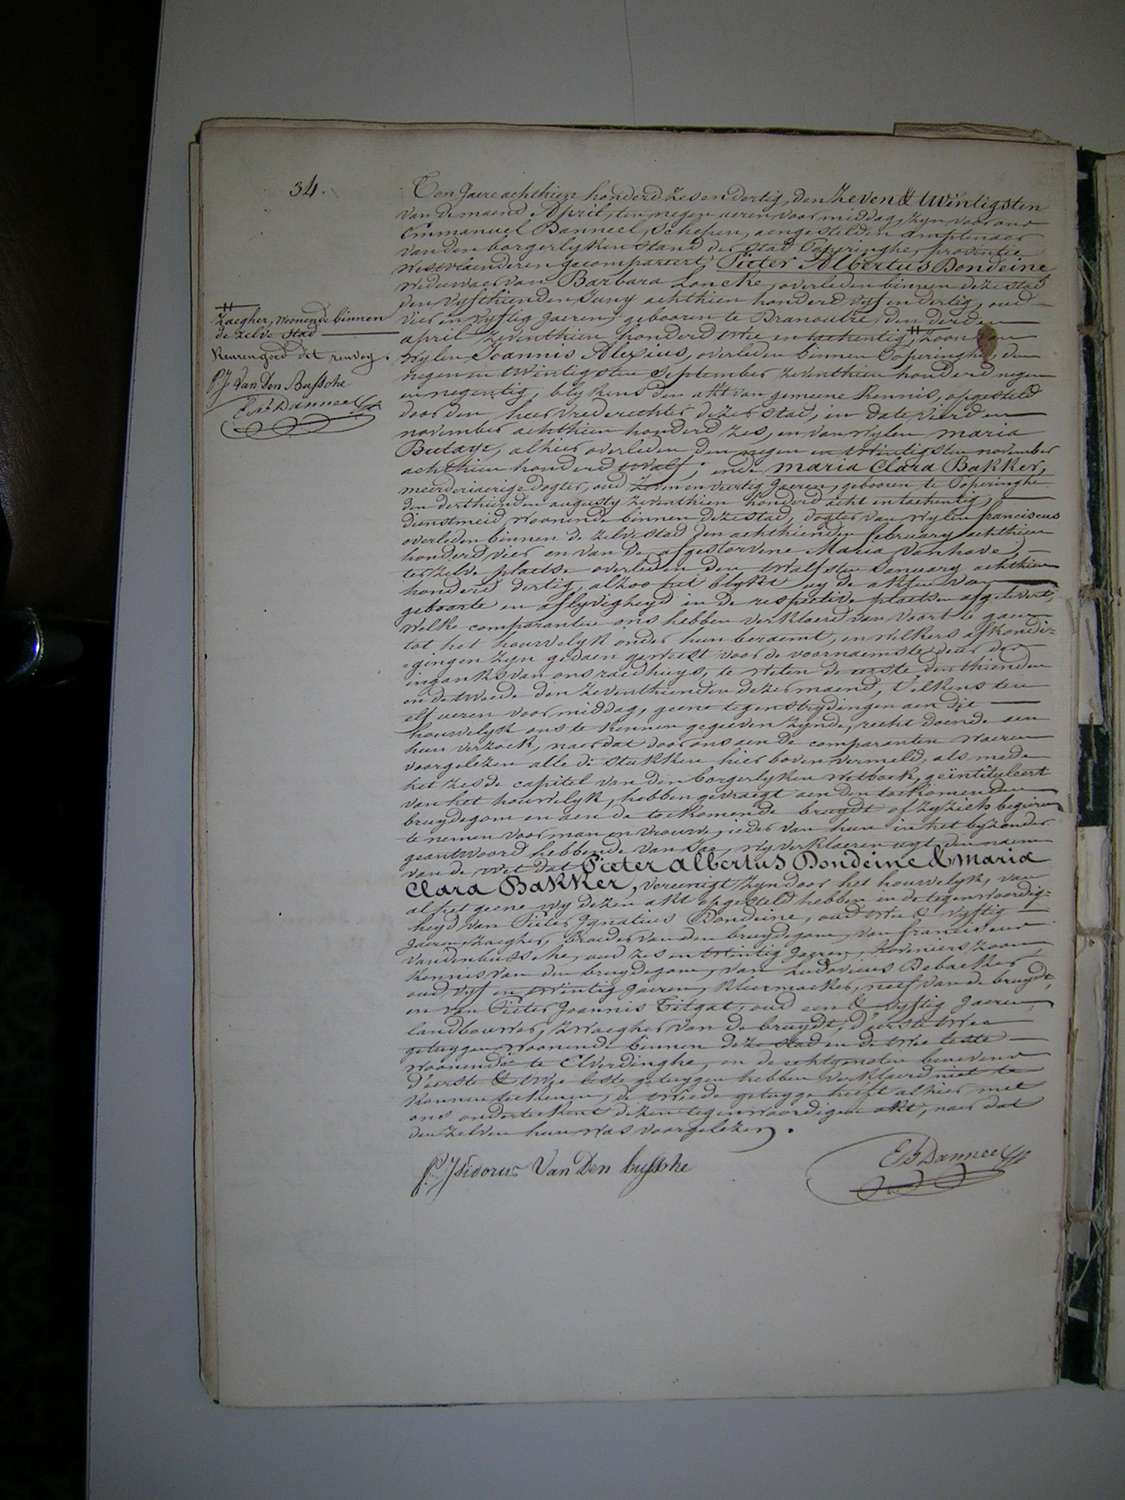 34.
Ten Jaere achthien honderd zes en dertig, den Zeven & twintigsten
van de maend April, ten negen ueren voor middag, zyn voor ons
Emmanuel Banneel, Schepen, aengestelden amptenaer
van den borgerlyken stand der stad Poperinghe, provintie
Westvlaenderen gecompareert, Pieter Albertus Dondeine
Weduwaer van Barbara Loncke, overleden binnen deze stad
den vyfthienden Juny achthien honderd vyf en dertig, oud
vier en vyftig jaeren, gebooren te Dranoutre, den derden
april zeventhien honderd twee en tachentig, # zoon van
wylen Joannis Alexius, overleden binnen Poperinghe, den
negen en twintigsten September zeventhien honderd negen
en negentig, blykens den akt van gemeene kennis, opgesteld
door den heer vrederechter dezer stad, in date vierden
november achthien honderd zes, en van wylen Maria
Butaye, alhier overleden den negen en twintigsten november
achthien honderd twalf; ende Maria Clara Bakker,
meerderjaerige dogter, oud zeven en veertig Jaeren, gebooren te Poperinghe
den derthienden augusty zeventhien honderd acht en tachentig,
dienstmeid, woonende binnen deze stad, dogter van wylen franciscus
overleden binnen de zelve stad den achthienden february achthien
honderd vier en van de afgestorvene Maria Vanhove,
ter zelve plaetse overleden den twalfsten January achthien
honderd dertig, alzoo het blykt uyt de akten van
geboorte en aflyvigheyd in de respective plaetsen afgelevert,
Welke comparanten ons hebben verklaerd van voort te gaen
tot het houwelyk onder hun beraemt, en welkers afkondi-
gingen zyn gedaen geweest voor de voornaemste deur der
ingank van ons raedhuys, te weten de eerste den thienden
en de twede den zeventhienden dezer maend, telkens ten
elf ueren voor middag, geene tegenstrydingen aen dit
houwelyk ons te kennen gegeeven zynde, recht doende aen
hun verzoek, naer dat door ons aen de comparanten waeren
voorgelezen alle de stukken hier boven vermeld, als mede
het zesde capitel van den borgerlyken wetboek, geintituleert
van het houwelyk, hebben gevraegt aen den toekomenden
bruydegom en aen de toekomende bruydt of zy zich begeeren
te nemen voor man en vrouwe, ieder van hun in het byzonder
geantwoord hebbende van Jaa, wy verklaeren uyt den naem
van de wet dat Pieter Albertus Dondeine & Maria
Clara Bakker, vereenigt zyn door het houwelyk, van
al het geene wy dezen akt opgesteld hebben in de tegenwoordig-
heyd van Pieter Ignatius Dondeine, oud twee & vyftig
Jaeren, Zaegher, Broeder van den bruydegom, van franciscus
vandenbussche, oud zes en twintig Jaeren, hoveniers zoon,
kennis van den bruydegom, van Ludovicus Debacker
oud vyf en twintig Jaeren, kleermaeker, neef van de bruydt,
en van Pieter Joannis Titgat, oud een & vyftig Jaeren
landbouwer, zwaegher van de bruydt, d'eerste twee
getuygen woonende binnen deze stad en de twee leste
woonende te Elverdinghe, en de echtgenoten benevens
d'eerste & twee leste getuygen hebben verklaerd niet te
konnen teekenen, de tweede getuyge heeft alhier met
ons onderteekent dezen tegenwoordigen akt, naer dat
den zelven hun was voorgelezen.
Isidorus Van Den Bussche
E Banneel
#
Zaegher, woonende binnen
de zelve stad
Keurengoed dit renvoy.
Van Den Bussche
Banneel